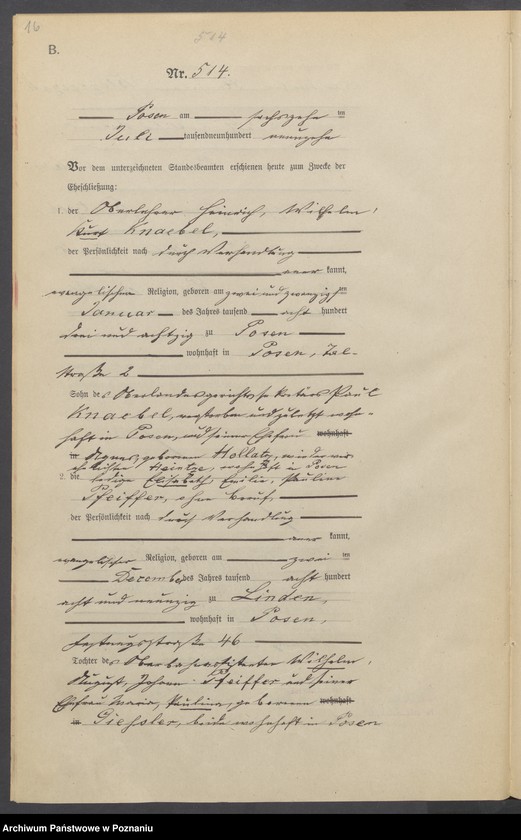 16
514
B.
Nr. 514.
Posen am sechszehnten
Juli tausendneunhundert neunzehn
Vor dem unterzeichneten Standesbeamten erschienen heute zum Zwecke der
Eheschließung:
1. der Oberlehrer Heinrich, Wilhelm,
Kurt Knaebel,
der Persönlichkeit nach durch Verhandlung
aner kannt,
evangelischer Religion, geboren am zweiundzwanzigsten
Januar des Jahres tausend acht hundert
drei und achtzig zu Posen
wohnhaft in Posen, Tal-
straße 2
Sohn des Oberlandesgerichtssekretärs Paul
Knaebel, verstorben und zuletzt wohn-
haft in Posen, und seiner Ehefrau wohnhaft
in Agnes, geborenen Hollatz, wiederver-
ehelichten Heintze, wohnhaft in Posen
2. die ledige Elisabeth, Emilie, Pauline
Pfeiffer, ohne Beruf,
der Persönlichkeit nach durch Verhandlung
aner kannt,
evangelischer Religion, geboren am zweiten
December des Jahres tausend acht hundert
acht und neunzig zu Linden,
wohnhaft in Posen,
Festungsstraße 46
Tochter des Wilhelm,
August, Johann Pfeiffer und seiner
Ehefrau Marie, Pauline, geborenen wohnhaft
in Giessler, beide wohnhaft in Posen
Archiwum Państwowe w Poznaniu